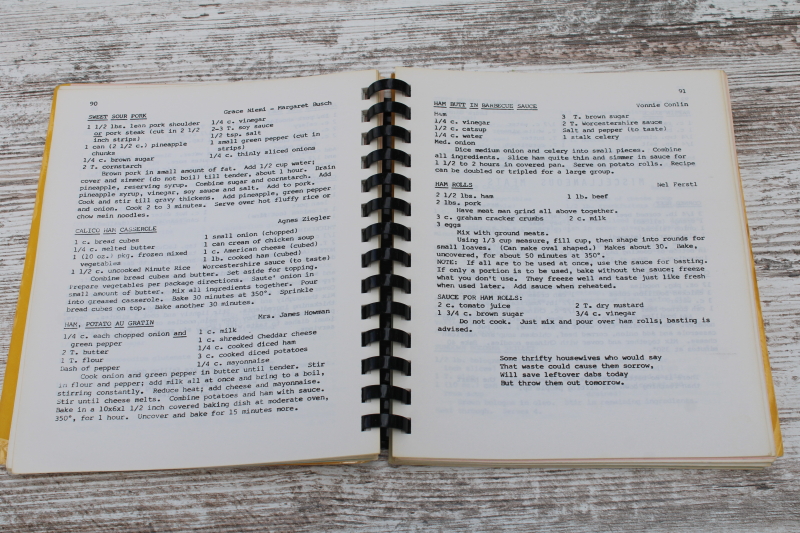 90
SWEET SOUR PORK Grace Niemi - Margaret Busch
1 1/2 lbs. lean pork shoulder 1/4 c. vinegar
or pork steak (cut in 2 1/2 2-3 T. soy sauce
inch strips) 1/2 tsp. salt
1 can (2 1/2 c.) pineapple 1 small green pepper (cut in
chunks strips)
1/4 c. brown sugar 1/4 c. thinly sliced onions
2 T. cornstarch
Brown pork in small amount of fat. Add 1/2 cup water;
cover and simmer (do not boil) till tender, about 1 hour. Drain
pineapple, reserving syrup. Combine sugar and cornstarch. Add
pineapple syrup, vinegar, soy sauce and salt. Add to pork.
Cook and stir till gravy thickens. Add pineapple, green pepper
and onion. Cook 2 to 3 minutes. Serve over hot fluffy rice or
chow mein noodles.
CALICO HAM CASSEROLE Agnes Ziegler
1 c. bread cubes 1 small onion (chopped)
1/4 c. melted butter 1 can cream of chicken soup
1 (10 oz.) pkg. frozen mixed 1 c. American cheese (cubed)
vegetables 1 lb. cooked ham (cubed)
1 1/2 c. uncooked Minute Rice Worcestershire sauce (to taste)
Combine bread cubes and butter. Set aside for topping.
Prepare vegetables per package directions. Saute' onion in
small amount of butter. Mix all ingredients together. Pour
into greased casserole. Bake 30 minutes at 350°. Sprinkle
bread cubes on top. Bake another 30 minutes.
HAM, POTATO AU GRATIN Mrs. James Howman
1/4 c. each chopped onion and 1 c. milk
green pepper 1 c. shredded Cheddar cheese
2 T. butter 1/4 c. cooked diced ham
1 T. flour 3 c. cooked diced potatoes
Dash of pepper 1/4 c. mayonnaise
Cook onion and green pepper in butter until tender. Stir
in flour and pepper; add milk all at once and bring to a boil,
stirring constantly. Reduce heat; add cheese and mayonnaise.
Stir until cheese melts. Combine potatoes and ham with sauce.
Bake in a 10x6x1 1/2 inch covered baking dish at moderate oven,
350°, for 1 hour. Uncover and bake for 15 minutes more.
91
HAM BUTT IN BARBECUE SAUCE Vonnie Conlin
Ham 3 T. brown sugar
1/4 c. vinegar 2 T. Worcestershire sauce
1/2 c. catsup Salt and pepper (to taste)
1/4 c. water 1 stalk celery
Med. onion
Dice medium onion and celery into small pieces. Combine
all ingredients. Slice ham quite thin and simmer in sauce for
1 1/2 to 2 hours in covered pan. Serve on potato rolls. Recipe
can be doubled or tripled for a large group.
HAM ROLLS Nel Ferstl
2 1/2 lbs. ham 1 lb. beef
2 lbs. pork
Have meat man grind all above together.
3 c. graham cracker crumbs 2 c. milk
3 eggs
Mix with ground meats.
Using 1/3 cup measure, fill cup, then shape into rounds for
small loaves. (Can make oval shaped.) Makes about 30. Bake,
uncovered, for about 50 minutes at 350°.
NOTE: If all are to be used at once, use the sauce for basting.
If only a portion is to be used, bake without the sauce; freeze
what you don't use. They freeze well and taste just like fresh
when used later. Add sauce when reheated.
SAUCE FOR HAM ROLLS:
2 c. tomato juice 2 T. dry mustard
1 3/4 c. brown sugar 3/4 c. vinegar
Do not cook. Just mix and pour over ham rolls; basting is
advised.
Some thrifty housewives who would say
That waste could cause them sorrow,
Will save leftover dabs today
But throw them out tomorrow.